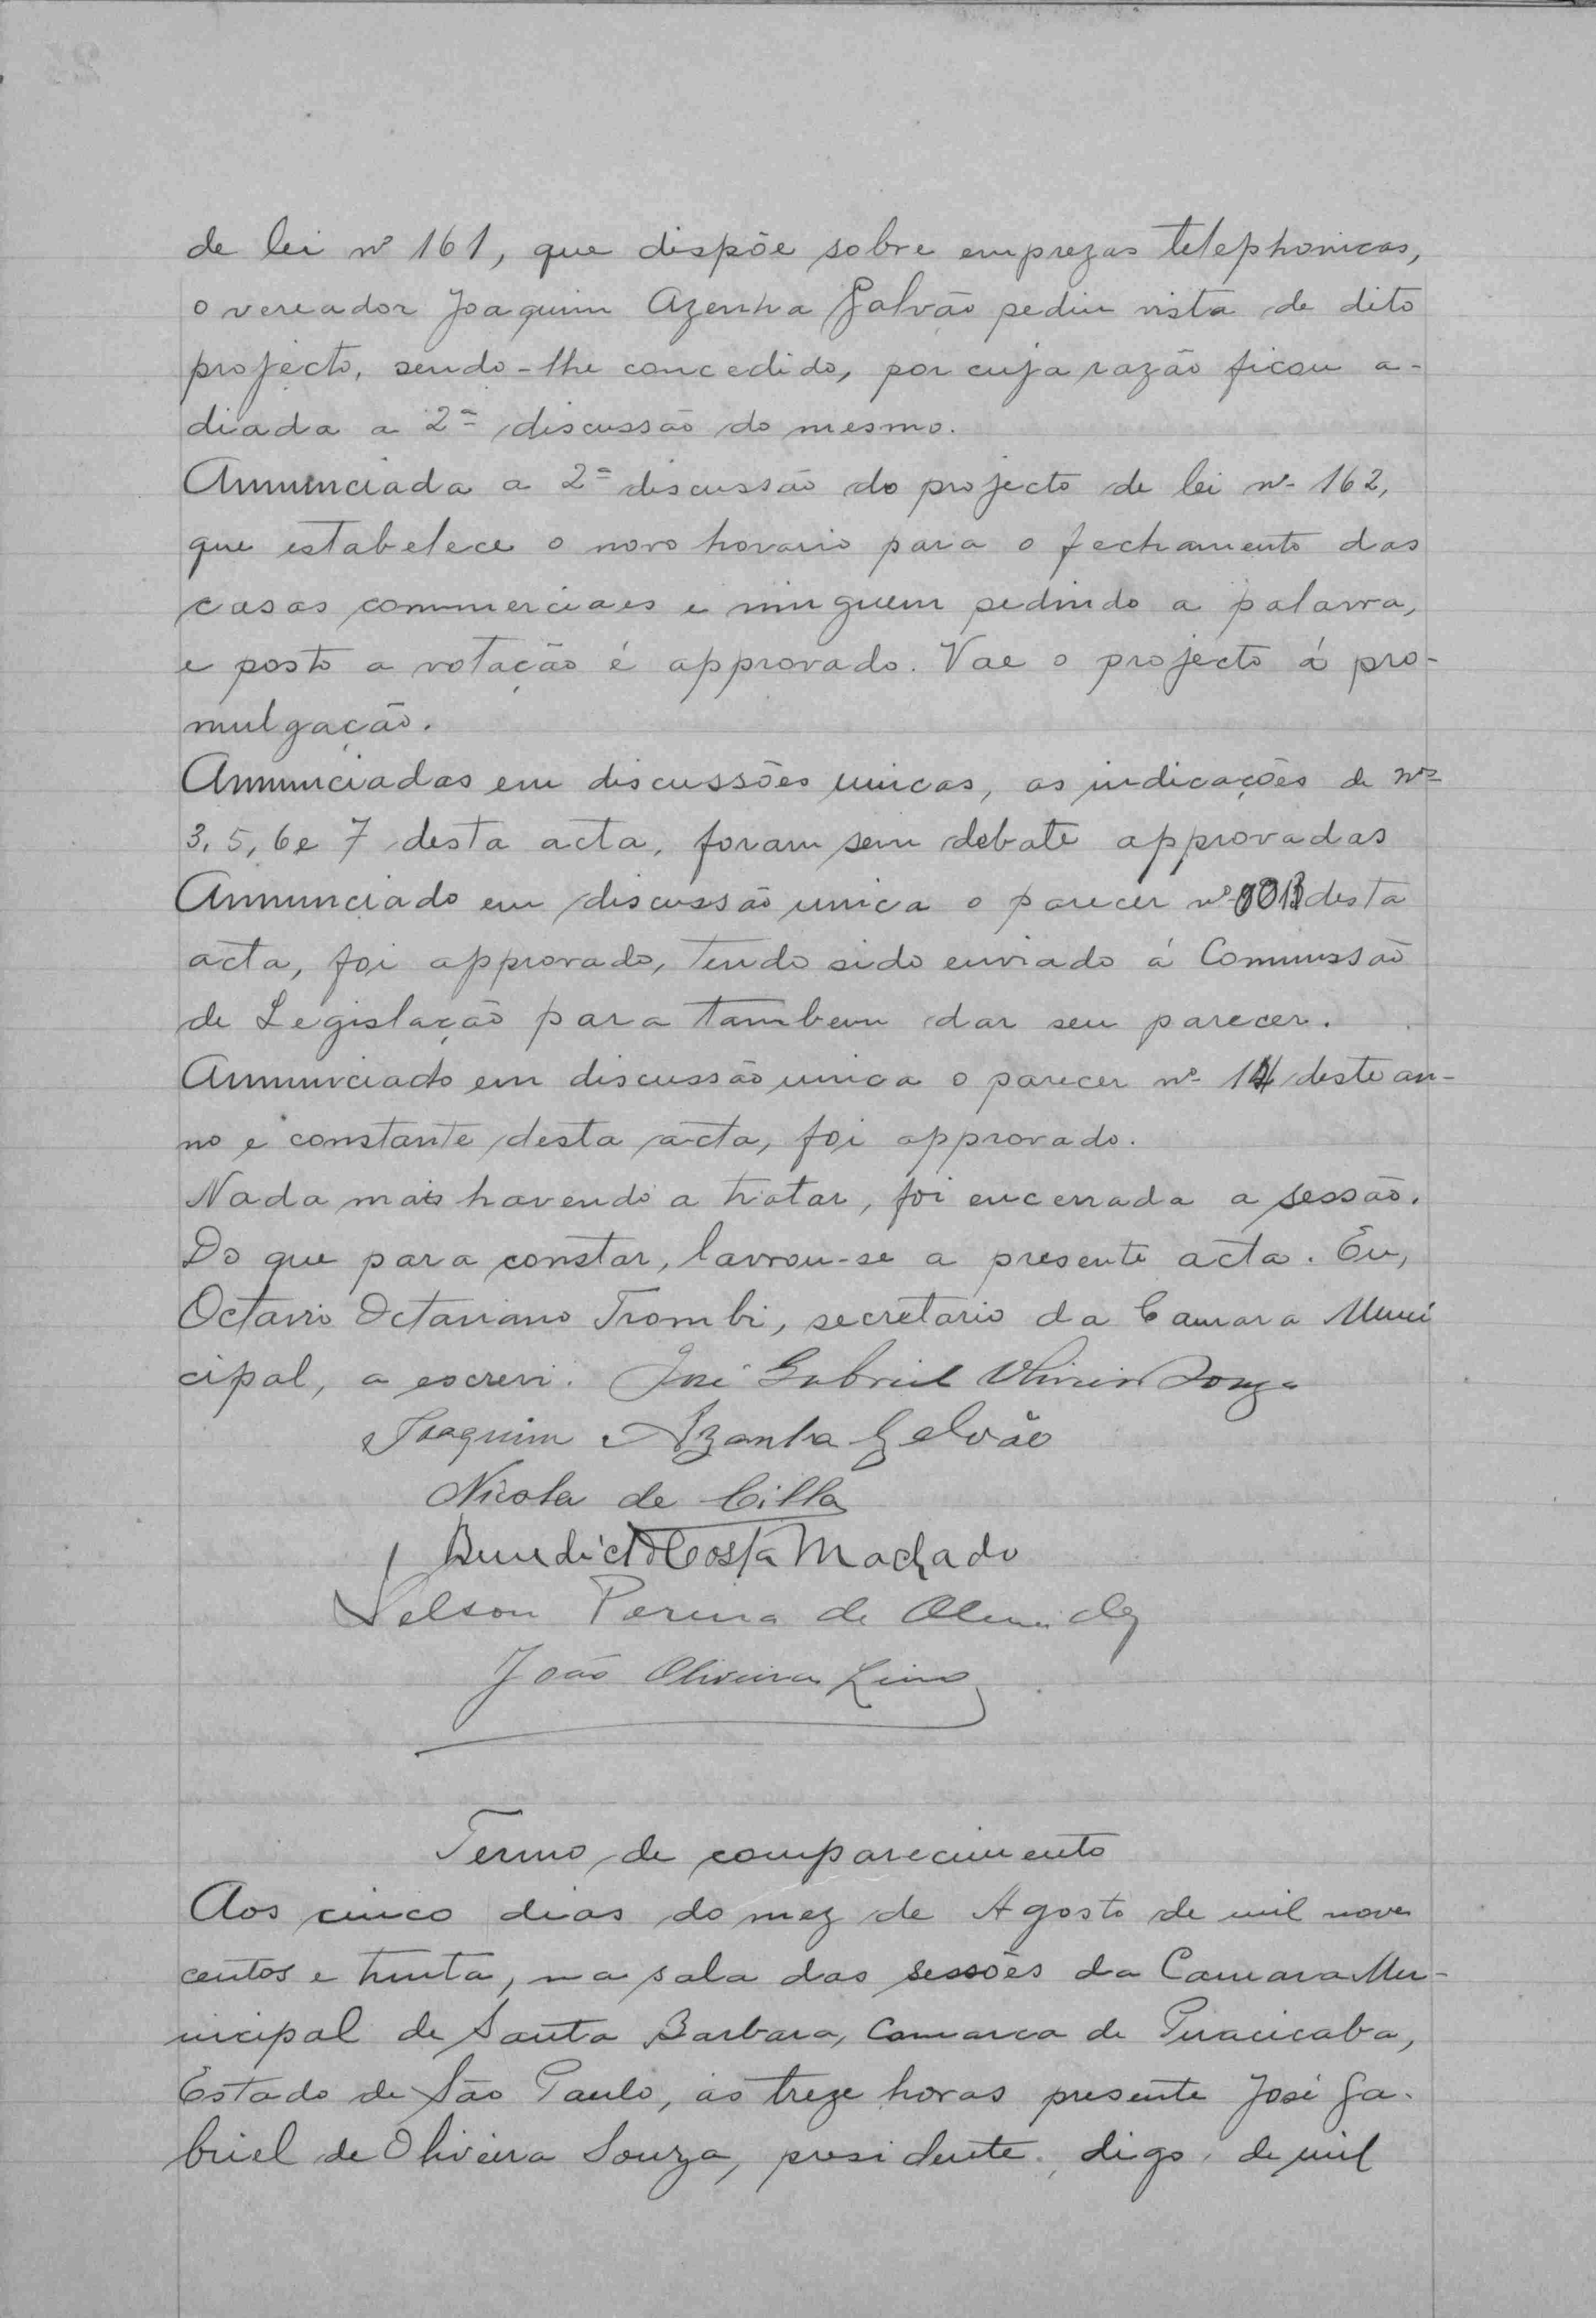 de lei nº 161, que dispõe sobre emprezas telephonicas,
o vereador Joaquim Azenha Galvão pediu vista de dito
projecto, sendo-lhe concedido, por cuja razão ficou a-
diada a 2ª discussão do mesmo.
Annunciada a 2ª discussão do projecto de lei nº 162,
que estabelece o novo horario para o fechamento das
casas commerciaes e ninguem pedindo a palavra,
e posto a votação é approvado. Vae o projecto á pro-
mulgação.
Annunciadas em discussões unicas, as indicações de nºs
3, 5, 6 e 7 desta acta, foram sem debate approvadas
Annunciado em discussão unica o parecer nº desta
acta, foi approvado, tendo sido enviado á Commissão
de Legislação para tambem dar seu parecer.
Annunciado em discussão unica o parecer nº 14 deste an-
no e constante desta acta, foi approvado.
Nada mais havendo a tratar, foi encerrada a sessão.
Do que para constar, lavrou-se a presente acta. Eu,
Octavio Octaviano Trombi, secretario da Camara Muni
cipal, a escrevi. José Gabriel Oliveira Souza
Joaquim Azanha Galvão
Nicola de Cillo
Benedicto Costa Machado
Nelson Pereira de Almeida
João Oliveira Lino
Termo de comparecimento
Aos cinco dias do mez de Agosto de mil nove
centos e trinta, na sala das sessões da Camara Mu-
nicipal de Santa Barbara, Comarca de Piracicaba,
Estado de São Paulo, ás treze horas presente José Ga-
briel de Oliveira Souza, presidente, digo, de mil